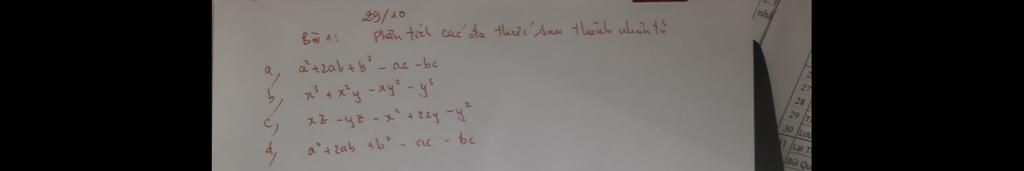 29/10
Bài 1: Phân tích các đa thức sau thành nhân tử
a, a² + 2ab + b² - ac - bc
b, x³ + x²y - xy² - y³
c, xz - yz - x² + 2xy - y²
d, a² + 2ab + b² - ac - bc
27
28
29
30 Lưu
Lại T
Bùi Qu